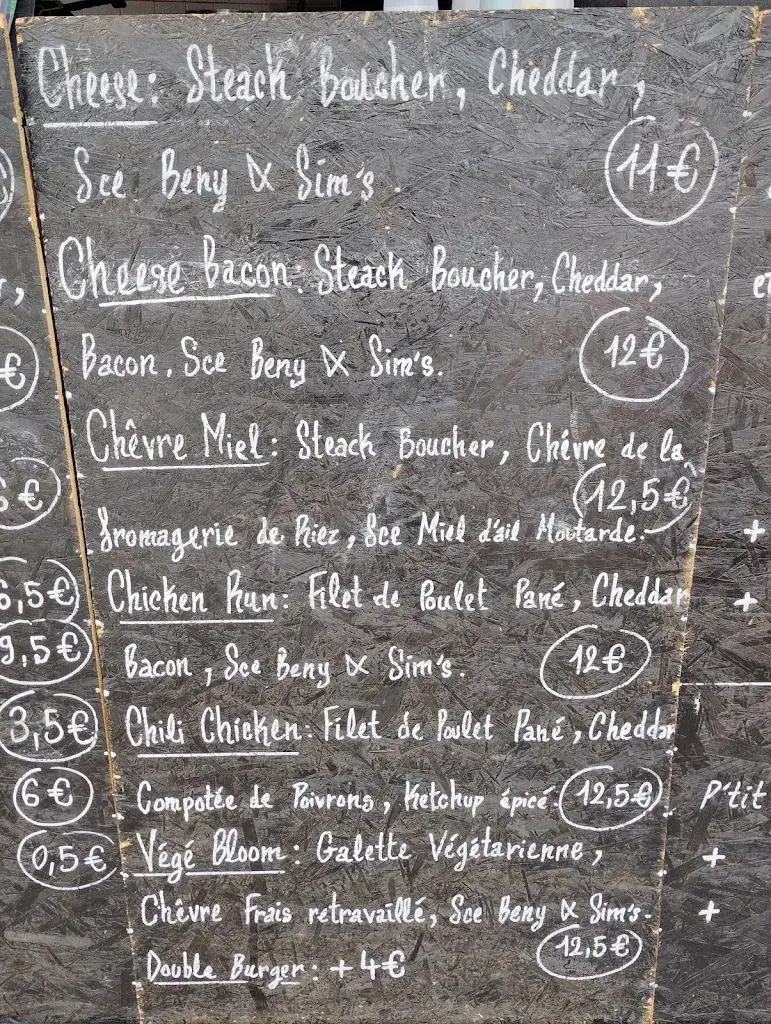 Cheese: Steack Boucher, Cheddar,
Sce Beny & Sim's.
11€
Cheese Bacon: Steack Boucher, Cheddar,
Bacon, Sce Beny & Sim's.
12€
Chêvre Miel: Steack Boucher, Chévre de la
12,5€
fromagerie de Riez, Sce Miel d'ail Moutarde.
Chicken Run: Filet de Poulet Pané, Cheddar
Bacon, Sce Beny & Sim's.
12€
Chili Chicken: Filet de Poulet Pané, Cheddar
Compotée de Poivrons, Ketchup épicé.
12,5€
Végé Bloom: Galette Végétarienne,
Chêvre Frais retravaillé, Sce Beny & Sim's.
12,5€
Double Burger: +4€
€
€
5,5€
9,5€
3,5€
6€
0,5€
et
+
+
P'tit
+
+